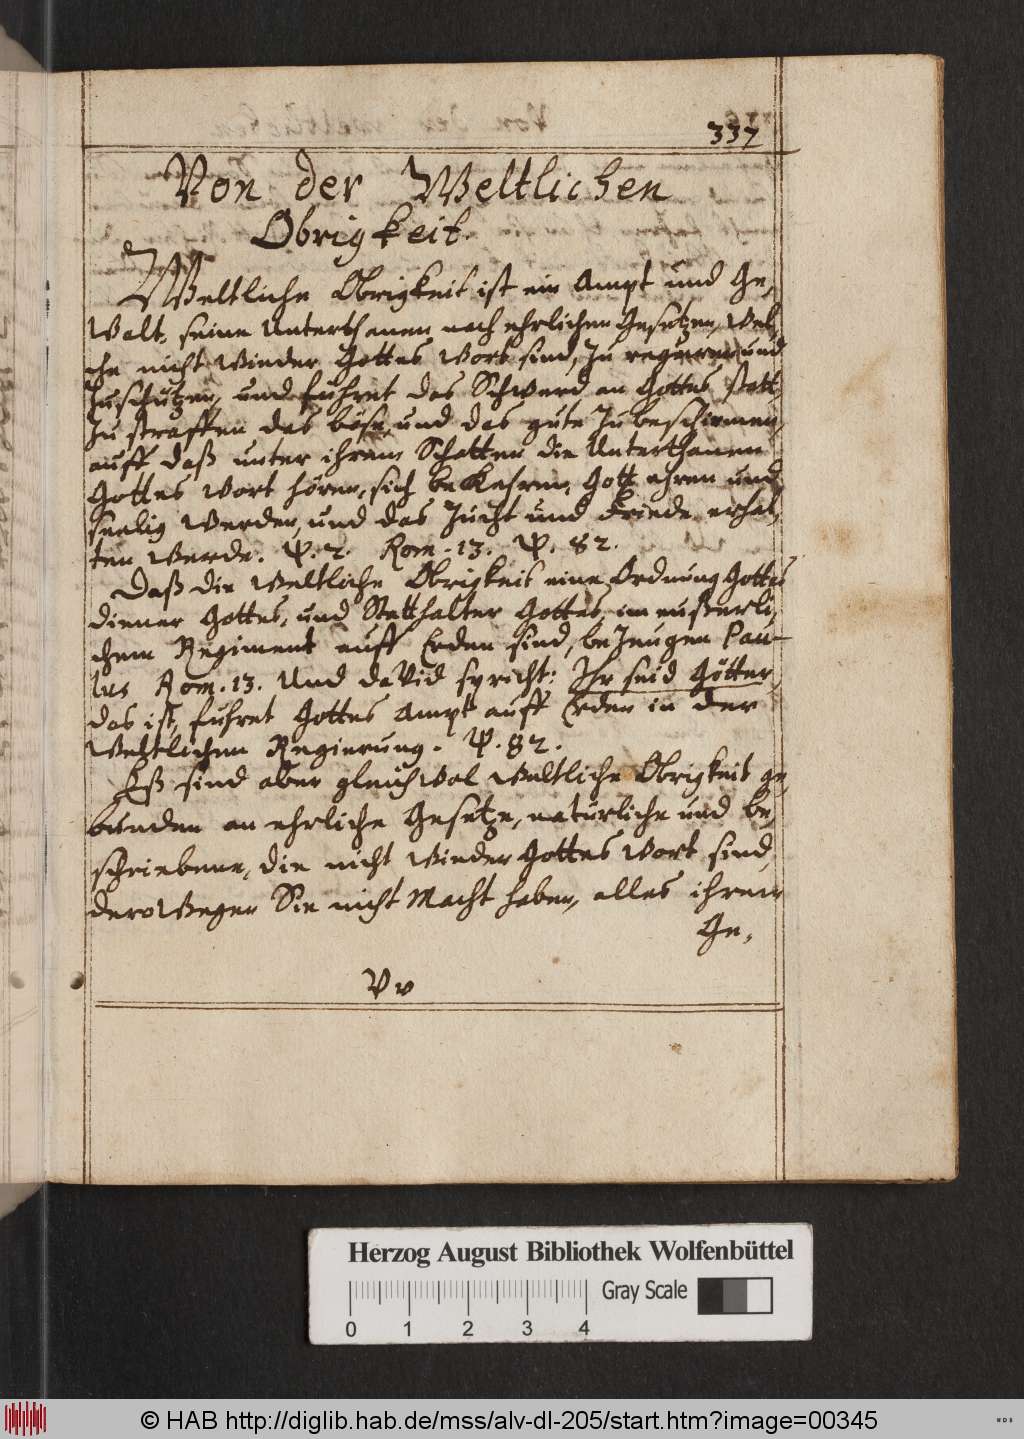 337
Von der Weltlichen
Obrigkeit.
Weltliche Obrigkeit ist ein Ampt und Ge,
walt, seine Unterthanen nach ehrlichen Gesetzen, wel,
che nicht wieder Gottes wort sind, zu regieren und
zuschützen, und fuhret das Schwerd an Gottes statt,
zu straffen das böse, und das gute zu beschirmen,
auff daß unter ihrem Schatten die Unterthanen
Gottes wort hören, sich bekehren, Gott ehren und
seelig werden, und das Zucht und Friede erhal,
ten werde. Ψ. 2. Rom. 13. Ψ. 82.
Daß die weltliche Obrigkeit eine Ordnung Gottes
diener Gottes, und Statthalter Gottes, im eußerli,
chem Regiment auff Erden sind, bezeugen Pau-
lus Rom. 13. Und David spricht: Ihr seid Götter,
das ist, fuhret Gottes Ampt auff Erden in der
weltlichen Regierung. Ψ. 82.
Eß sind aber gleichwol weltliche Obrigkeit ge,
bunden an ehrliche Gesetze, natürliche und be,
schriebene, die nicht wieder Gottes wort sind,
derowegen Sie nicht Macht haben, alles ihrem
Ge,
Vv
Herzog August Bibliothek Wolfenbüttel
Gray Scale
0 1 2 3 4
© HAB http://diglib.hab.de/mss/alv-dl-205/start.htm?image=00345